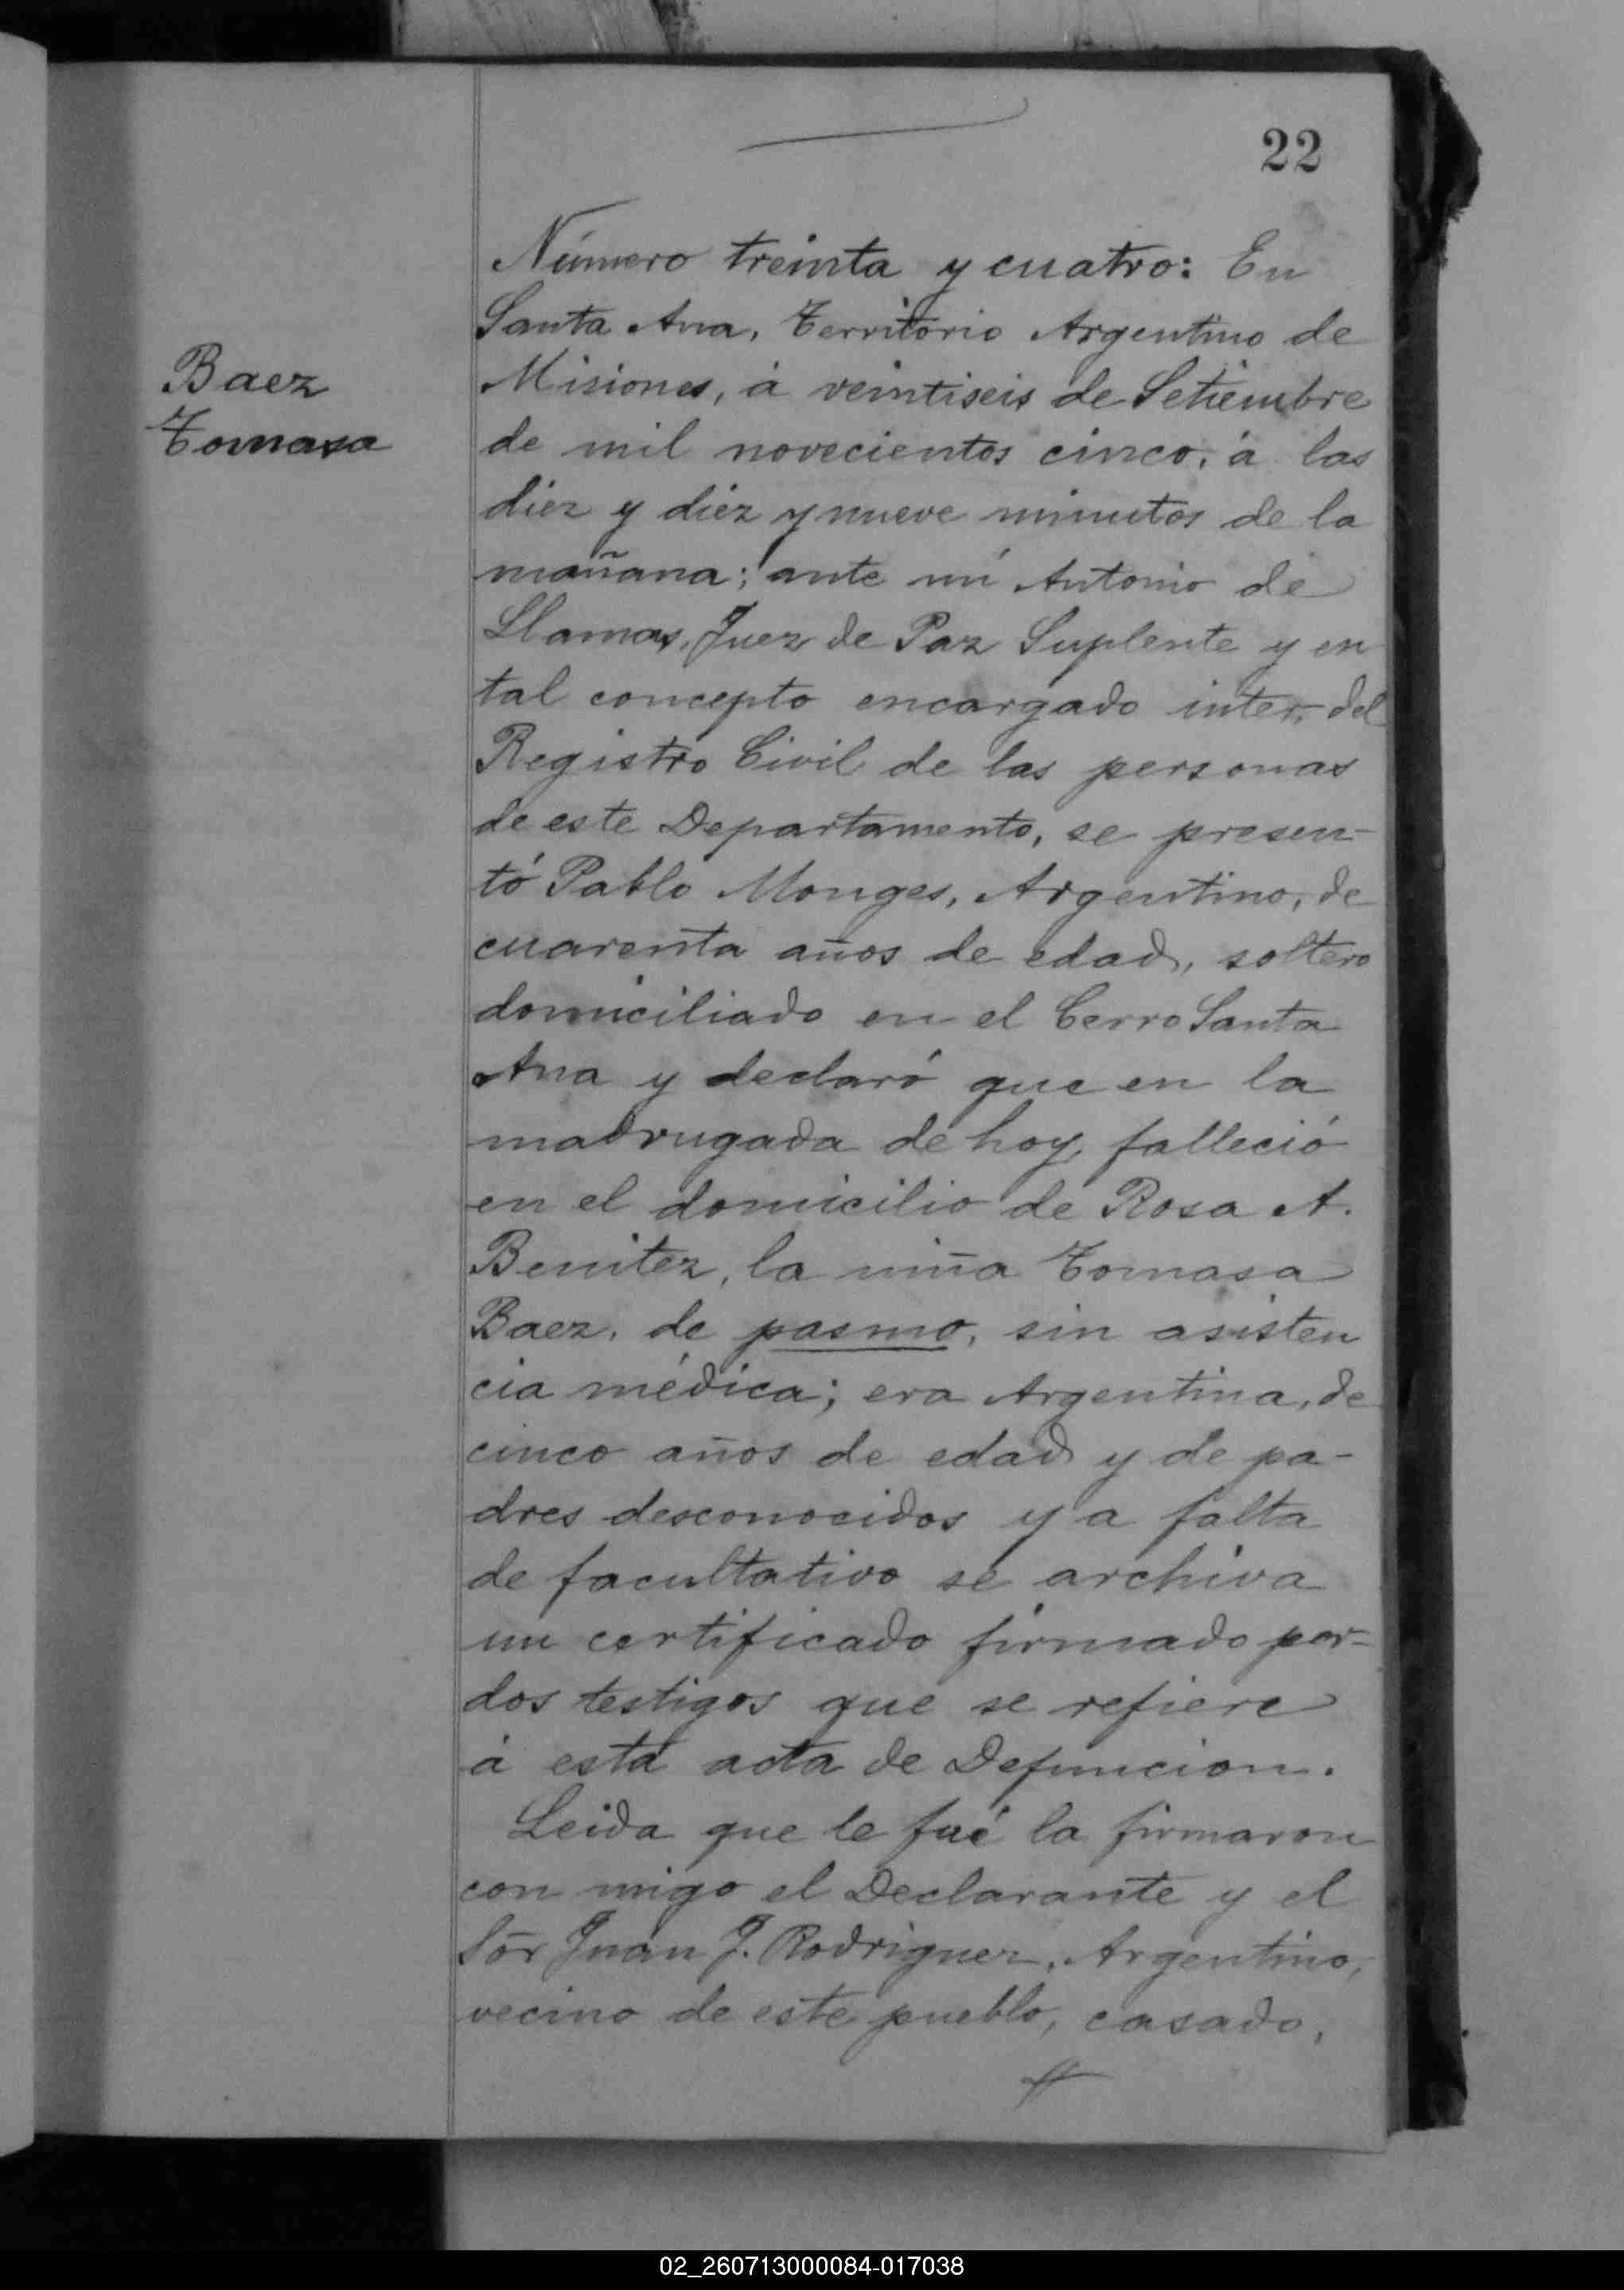 22
Baez
Tomasa
Número treinta y cuatro: En
Santa Ana, Territorio Argentino de
Misiones, á veintiseis de Setiembre
de mil novecientos cinco, á las
diez y diez y nueve minutos de la
mañana; ante mí Antonio de
Llamas, Juez de Paz Suplente y en
tal concepto encargado inter. del
Registro Civil de las personas
de este Departamento, se presen-
tó Pablo Monges, Argentino, de
cuarenta años de edad, soltero
domiciliado en el Cerro Santa
Ana y declaró que en la
madrugada de hoy falleció
en el domicilio de Rosa A.
Benitez, la niña Tomasa
Baez, de pasmo, sin asisten
cia médica; era Argentina, de
cinco años de edad y de pa-
dres desconocidos y a falta
de facultativo se archiva
un certificado firmado por-
dos testigos que se refiere
á esta acta de Defuncion.
Leida que le fué la firmaron
con migo el Declarante y el
Sõr Juan J. Rodriguez, Argentino,
vecino de este pueblo, casado,
02_260713000084-017038